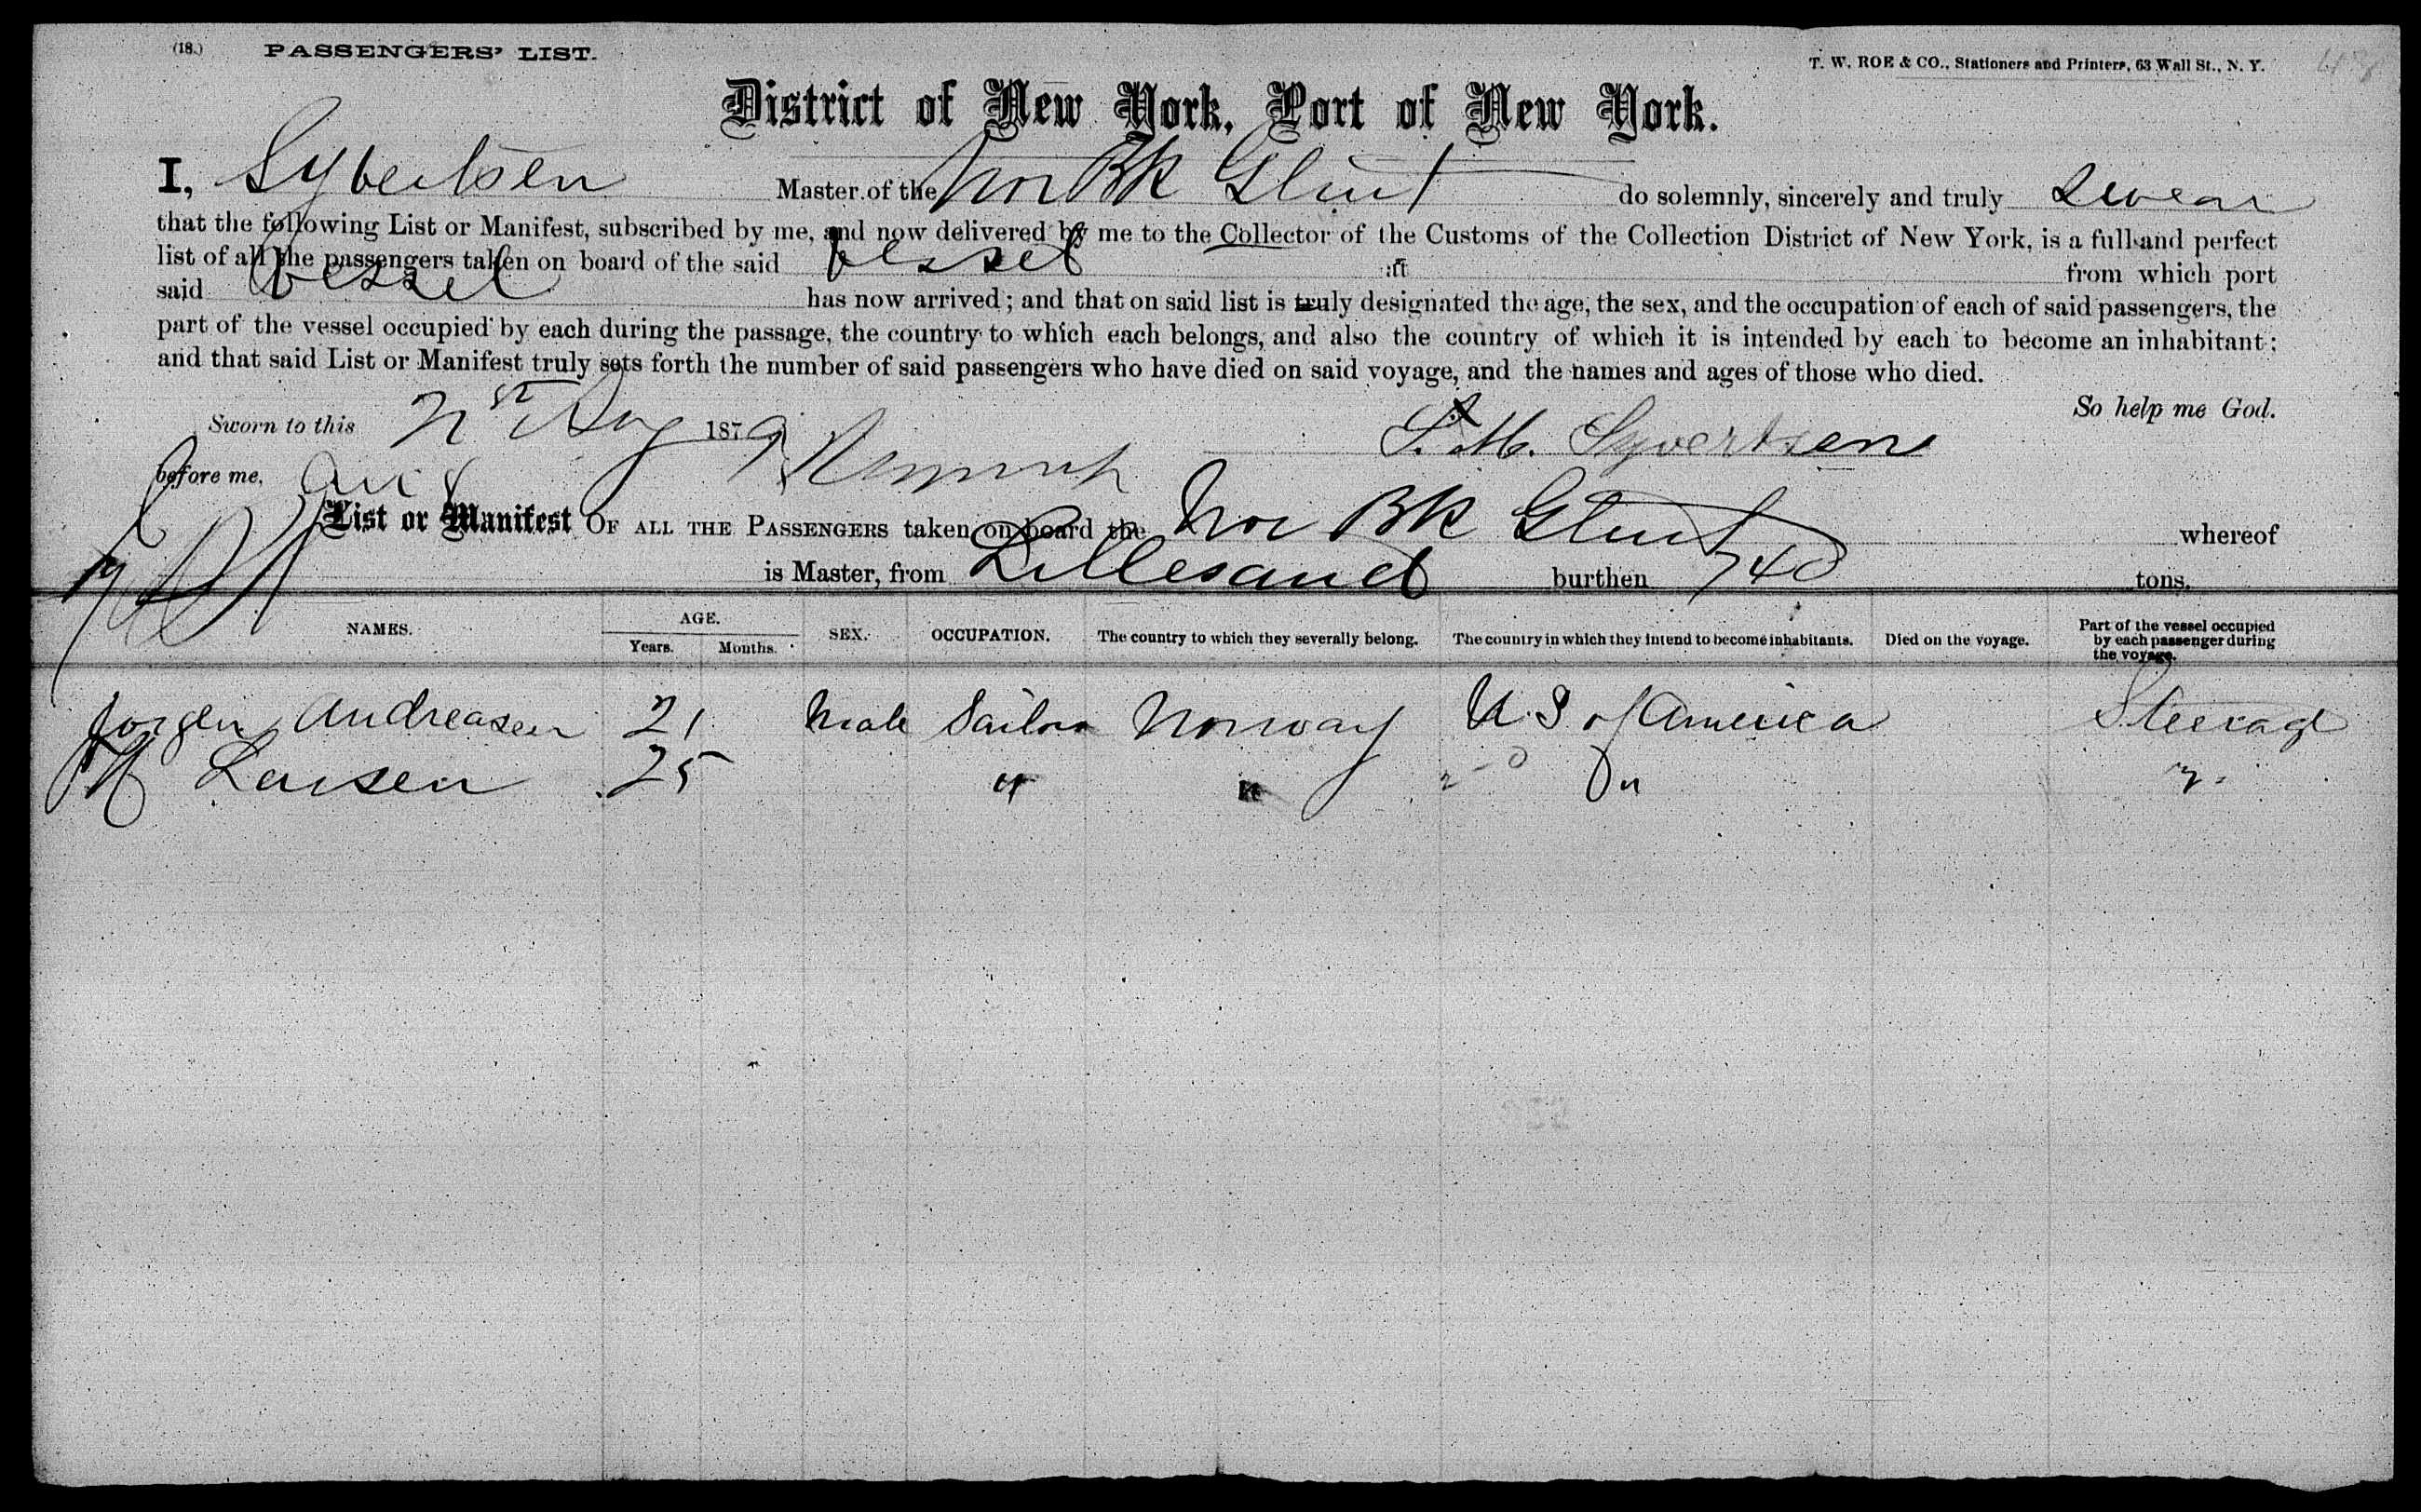 (18.) PASSENGERS' LIST.
T. W. ROE & CO., Stationers and Printers, 63 Wall St., N. Y.
District of New York, Port of New York.
I, Sybertsen Master of the Nor BK Glint do solemnly, sincerely and truly swear
that the following List or Manifest, subscribed by me, and now delivered by me to the Collector of the Customs of the Collection District of New York, is a full and perfect
list of all the passengers taken on board of the said vessel at from which port
said vessel has now arrived; and that on said list is truly designated the age, the sex, and the occupation of each of said passengers, the
part of the vessel occupied by each during the passage, the country to which each belongs, and also the country of which it is intended by each to become an inhabitant;
and that said List or Manifest truly sets forth the number of said passengers who have died on said voyage, and the names and ages of those who died.
So help me God.
Sworn to this Aug 1879
S. M. Syvertsen
before me,
List or Manifest OF ALL THE PASSENGERS taken on board the Nor BK Glint whereof
is Master, from Lillesand burthen 740 tons.
NAMES. AGE. Years. Months. SEX. OCCUPATION. The country to which they severally belong. The country in which they intend to become inhabitants. Died on the voyage. Part of the vessel occupied by each passenger during the voyage.
Jorgen Andreasen 21 Male Sailor Norway U.S of America Steerage
Larsen 25 " "